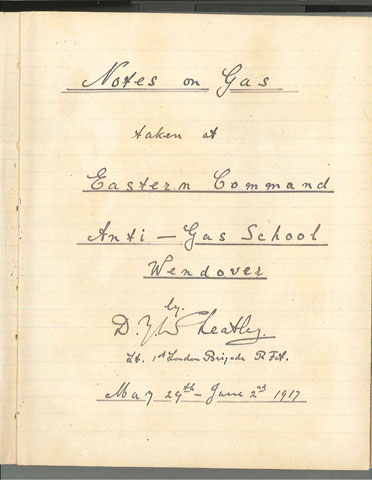 Notes on Gas
taken at
Eastern Command
Anti-Gas School
Wendover
by
D. Y. Wheatley.
Lt. 1st London Brigade R.F.A.
May 29th - June 2nd 1917